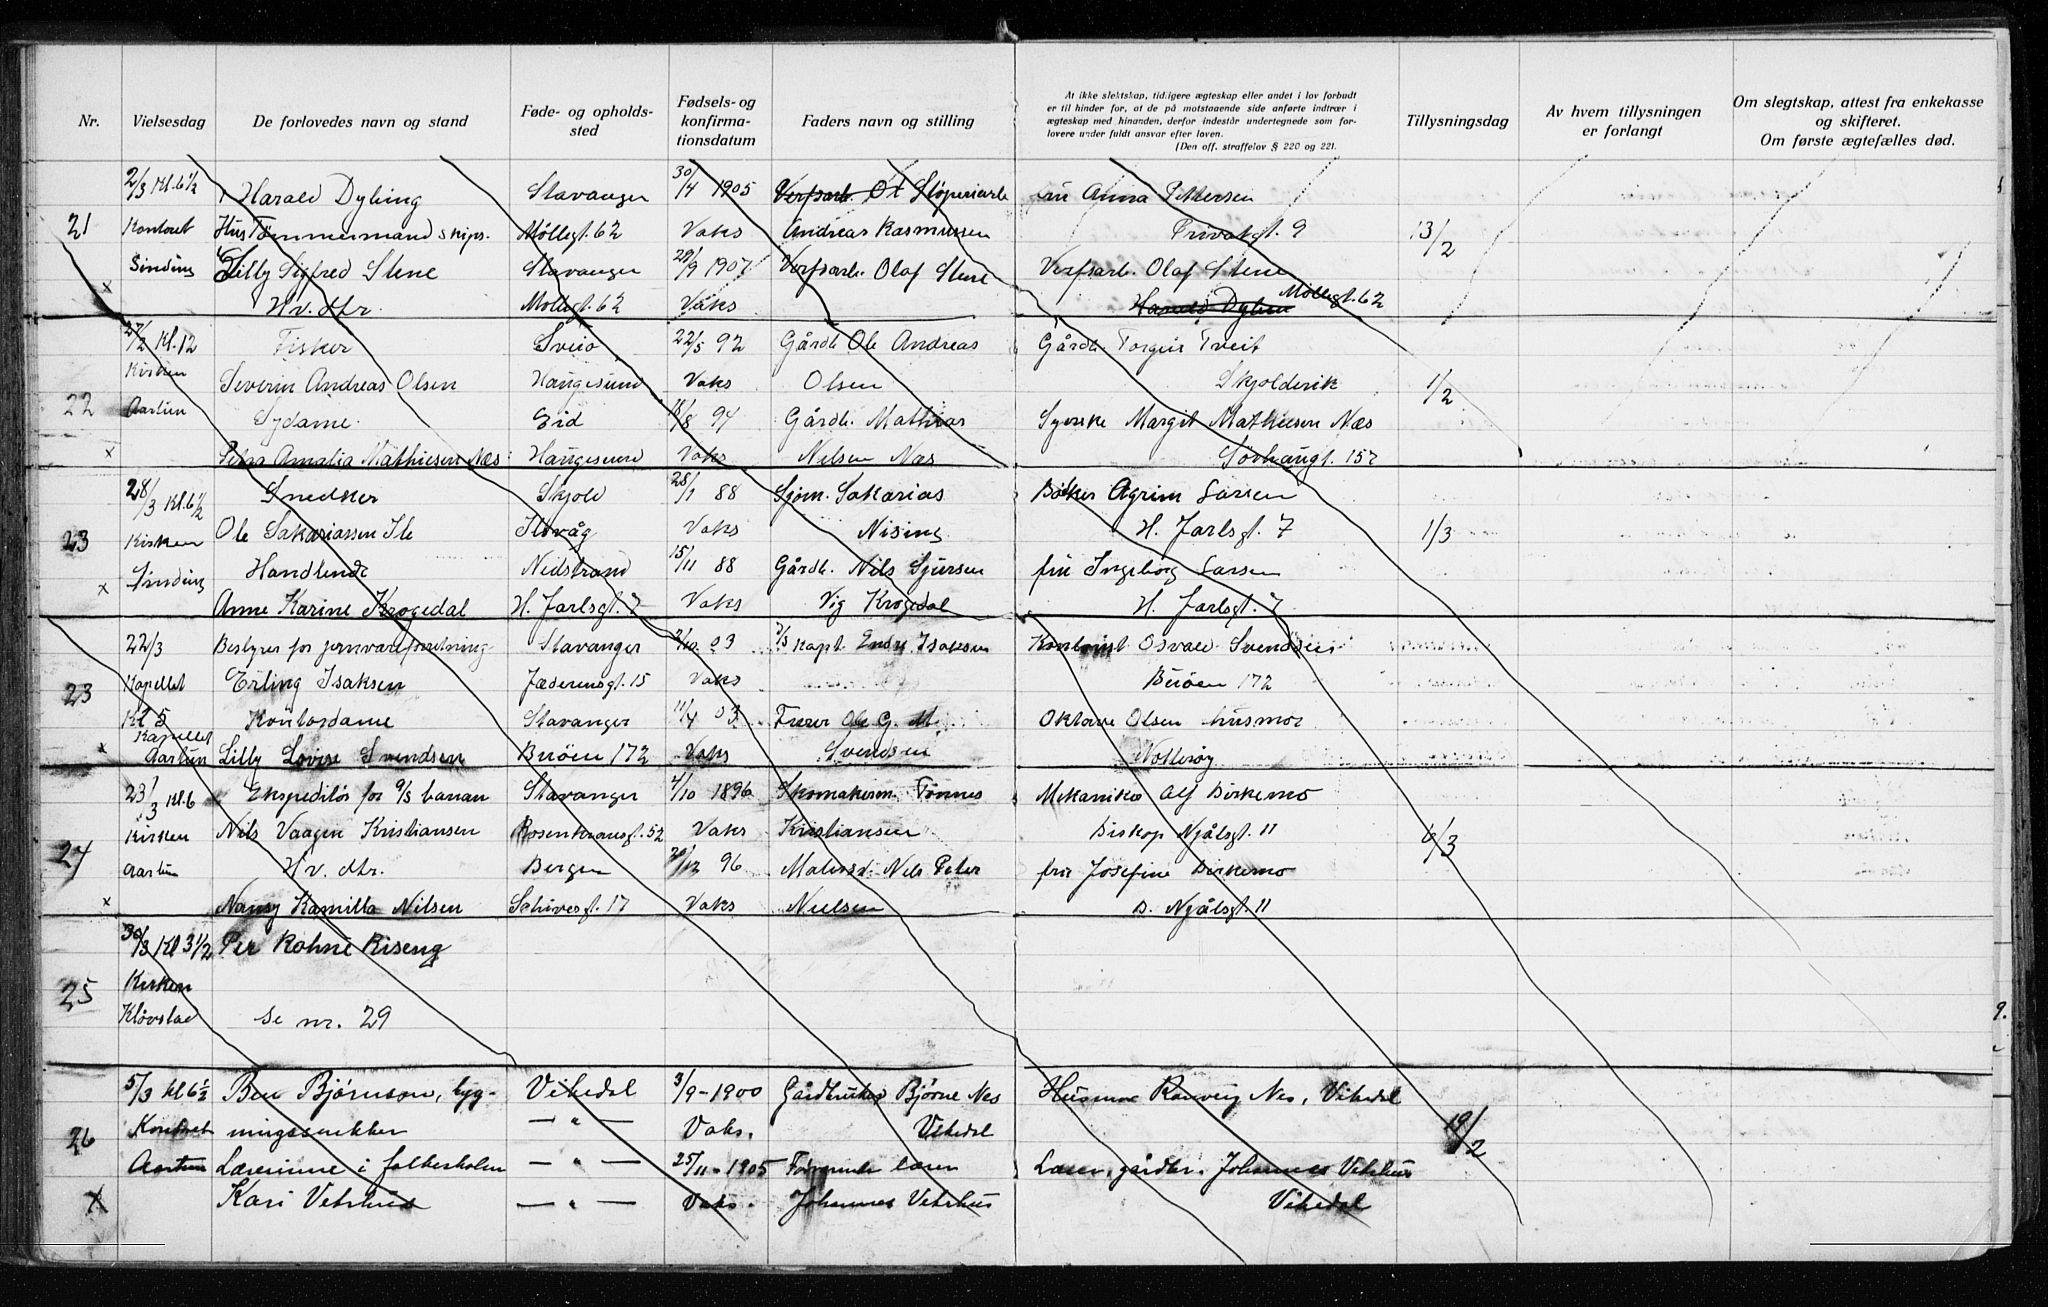 Nr.
Vielsesdag
De forlovedes navn og stand
Føde- og opholds-
sted
Fødsels- og
konfirma-
tionsdatum
Faders navn og stilling
At ikke slektskap, tidligere ægteskap eller andet i lov forbudt
er til hinder for, at de på motstaaende side anførte indtrær i
ægteskap med hinanden, derfor indestår undertegnede som for-
lovere under fuldt ansvar efter loven.
(Den off. straffelov § 220 og 221.
Tillysningsdag
Av hvem tillysningen
er forlangt
Om slegtskap, attest fra enkekasse
og skifteret.
Om første ægtefælles død.
2/3 Kl. 6 1/2 Harald Dybing Stavanger 30/4 1905 Verfsarb. Ol Støperiarb fru Anna Pettersen
21 Kontoret Hus Tømmermand skips. Møllegt. 62 Vaks Andreas Rasmussen Privatgt. 9 13/2
Sinding Lilly Sigfred Stene Stavanger 29/9 1907 Verfsarb. Olaf Stene Verfsarb. Olaf Stene
x Hv. dtr. Møllegt. 62 Vaks Harald Dybing Møllegt. 62
27/2 Kl. 12 Fisker Sveio 22/5 92 Gårdb. Ole Andreas Gårdb. Torgeir Tveit
Kirken Severin Andreas Olsen Haugesund Vaks Olsen Skjoldevik 1/2
22 Aartun Sydame Eid 18/8 94 Gårdb. Mathias Syerske Margit Mathiesen Næs
x Petra Amalia Mathiesen Næs Haugesund Vaks Nilsen Næs Sørhaugt. 157
28/3 Kl. 6 1/2 Snedker Skjold 28/1 88 Sjøm. Sakarias Bøker Agrim Larsen
23 Kirken Ole Sakariassen Ile Ilsvåg Vaks Nising H. Jarlsgt. 7 1/3
Sinding Handlende Nedstrand 15/11 88 Gårdb. Nils Sjursen fru Ingeborg Larsen
x Anne Karine Krogedal H. Jarlsgt. 7 Vaks Vig Krogedal H. Jarlsgt. 7
22/3 Bestyrer for jernvareforretning Stavanger 2/10 03 D/S Kapt. Endre Isaksen Kontorist Osvald Svendsen
23 Kapellet Erling Isaksen Jæderensgt. 15 Vaks Buøen 172
Kl 5 Kontordame Stavanger 11/4 03 Fører Ole G. M. Oktave Olsen husmor
Kapellet
x Aartun Lilly Lovise Svendsen Buøen 172 Vaks Svendsen Notterøy
23/3 Kl. 6 Ekspeditør for A/S banan Stavanger 4/10 1896 Skomakerm. Tønnes Mekaniker Alf Birkemo
Kirken Nils Vaagen Kristiansen Rosenkransgt. 52 Vaks Kristiansen Biskop Njålsgt. 11 6/3
24 Aartun Hv. dtr. Bergen 20/12 96 Matersd. Nils Peter fru Josefine Birkemo
x Nancy Kamilla Nilsen Schivesgt. 17 Vaks Nielsen B. Njålsgt. 11
30/3 Kl 3 1/2 Per Rohne Riseng
25 Kirken
Kløvstad se nr. 29
5/3 kl 6 1/2 Ben Bjørnson, byg- Vikedal 3/9-1900 Gårdbruker Bjørne Nes Husmor Ranveig Nes, Vikedal
26 Kontoret ningssnikker — " — Vaks. Vikedal 19/2
Aartun Lærerinne i folkeskolen — " — 25/11-1905 Forhenv. lærer Lærer, gårdbr. Johannes Vetrhus
x Kari Vetrhus — " — Vaks. Johannes Vetrhus Vikedal
9.